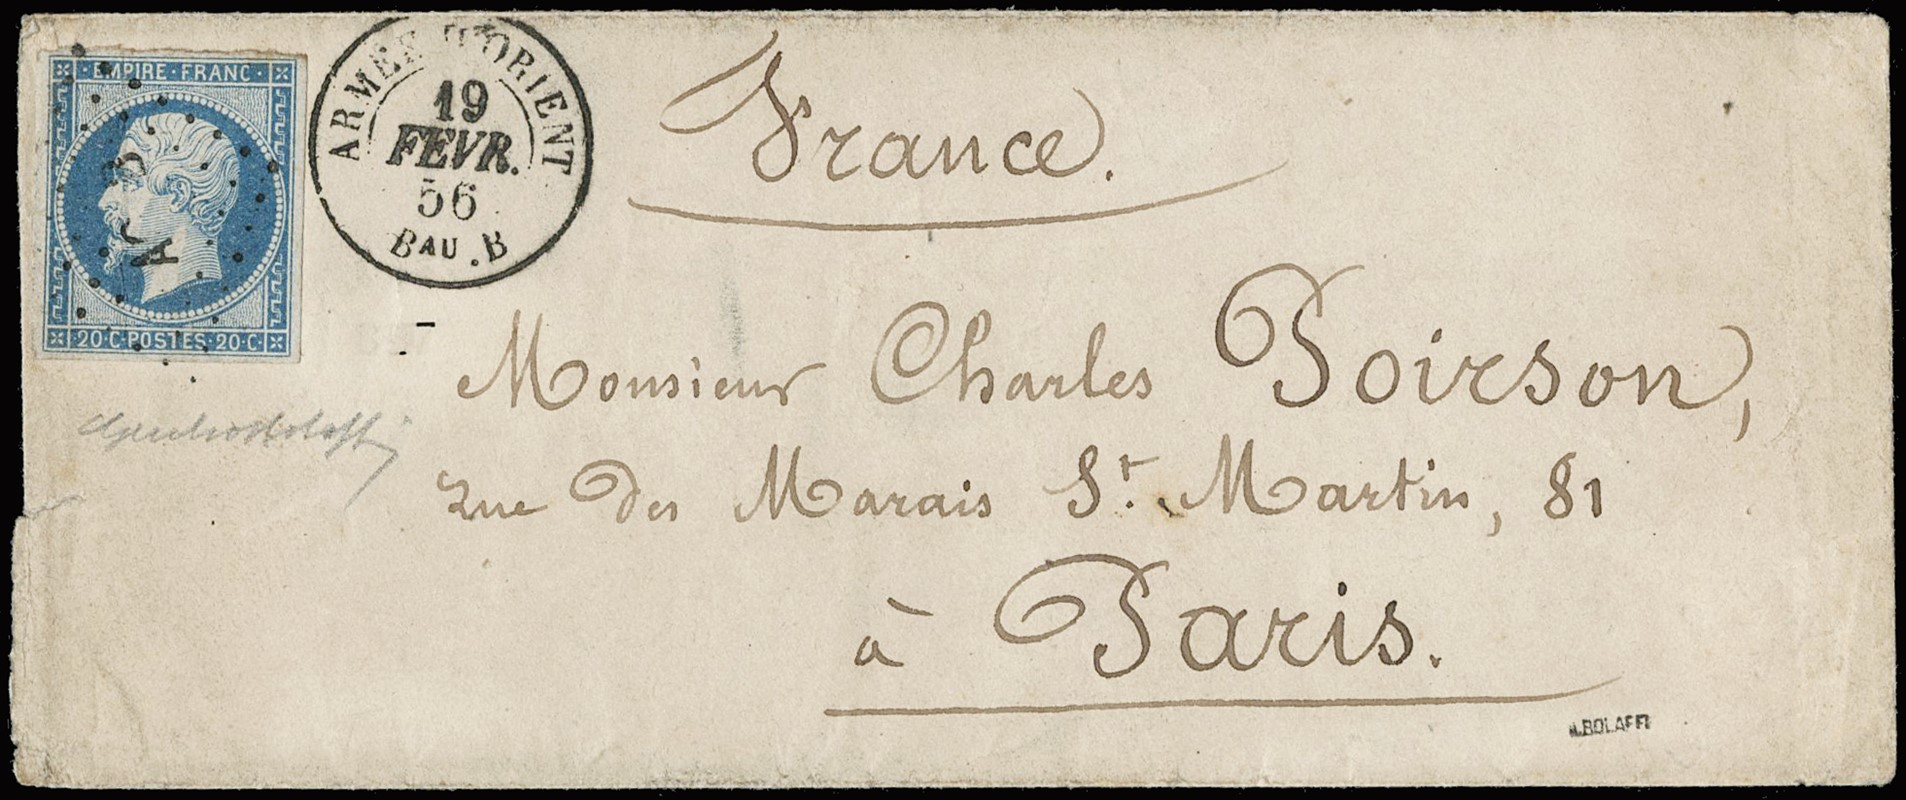 EMPIRE · FRANC ·
20 · C · POSTES · 20 · C ·
ARMÉE D'ORIENT
19
FEVR.
56
BAU. B
France.
Monsieur Charles Poirson,
rue des Marais St. Martin, 81
à Paris.
BOLAFFI